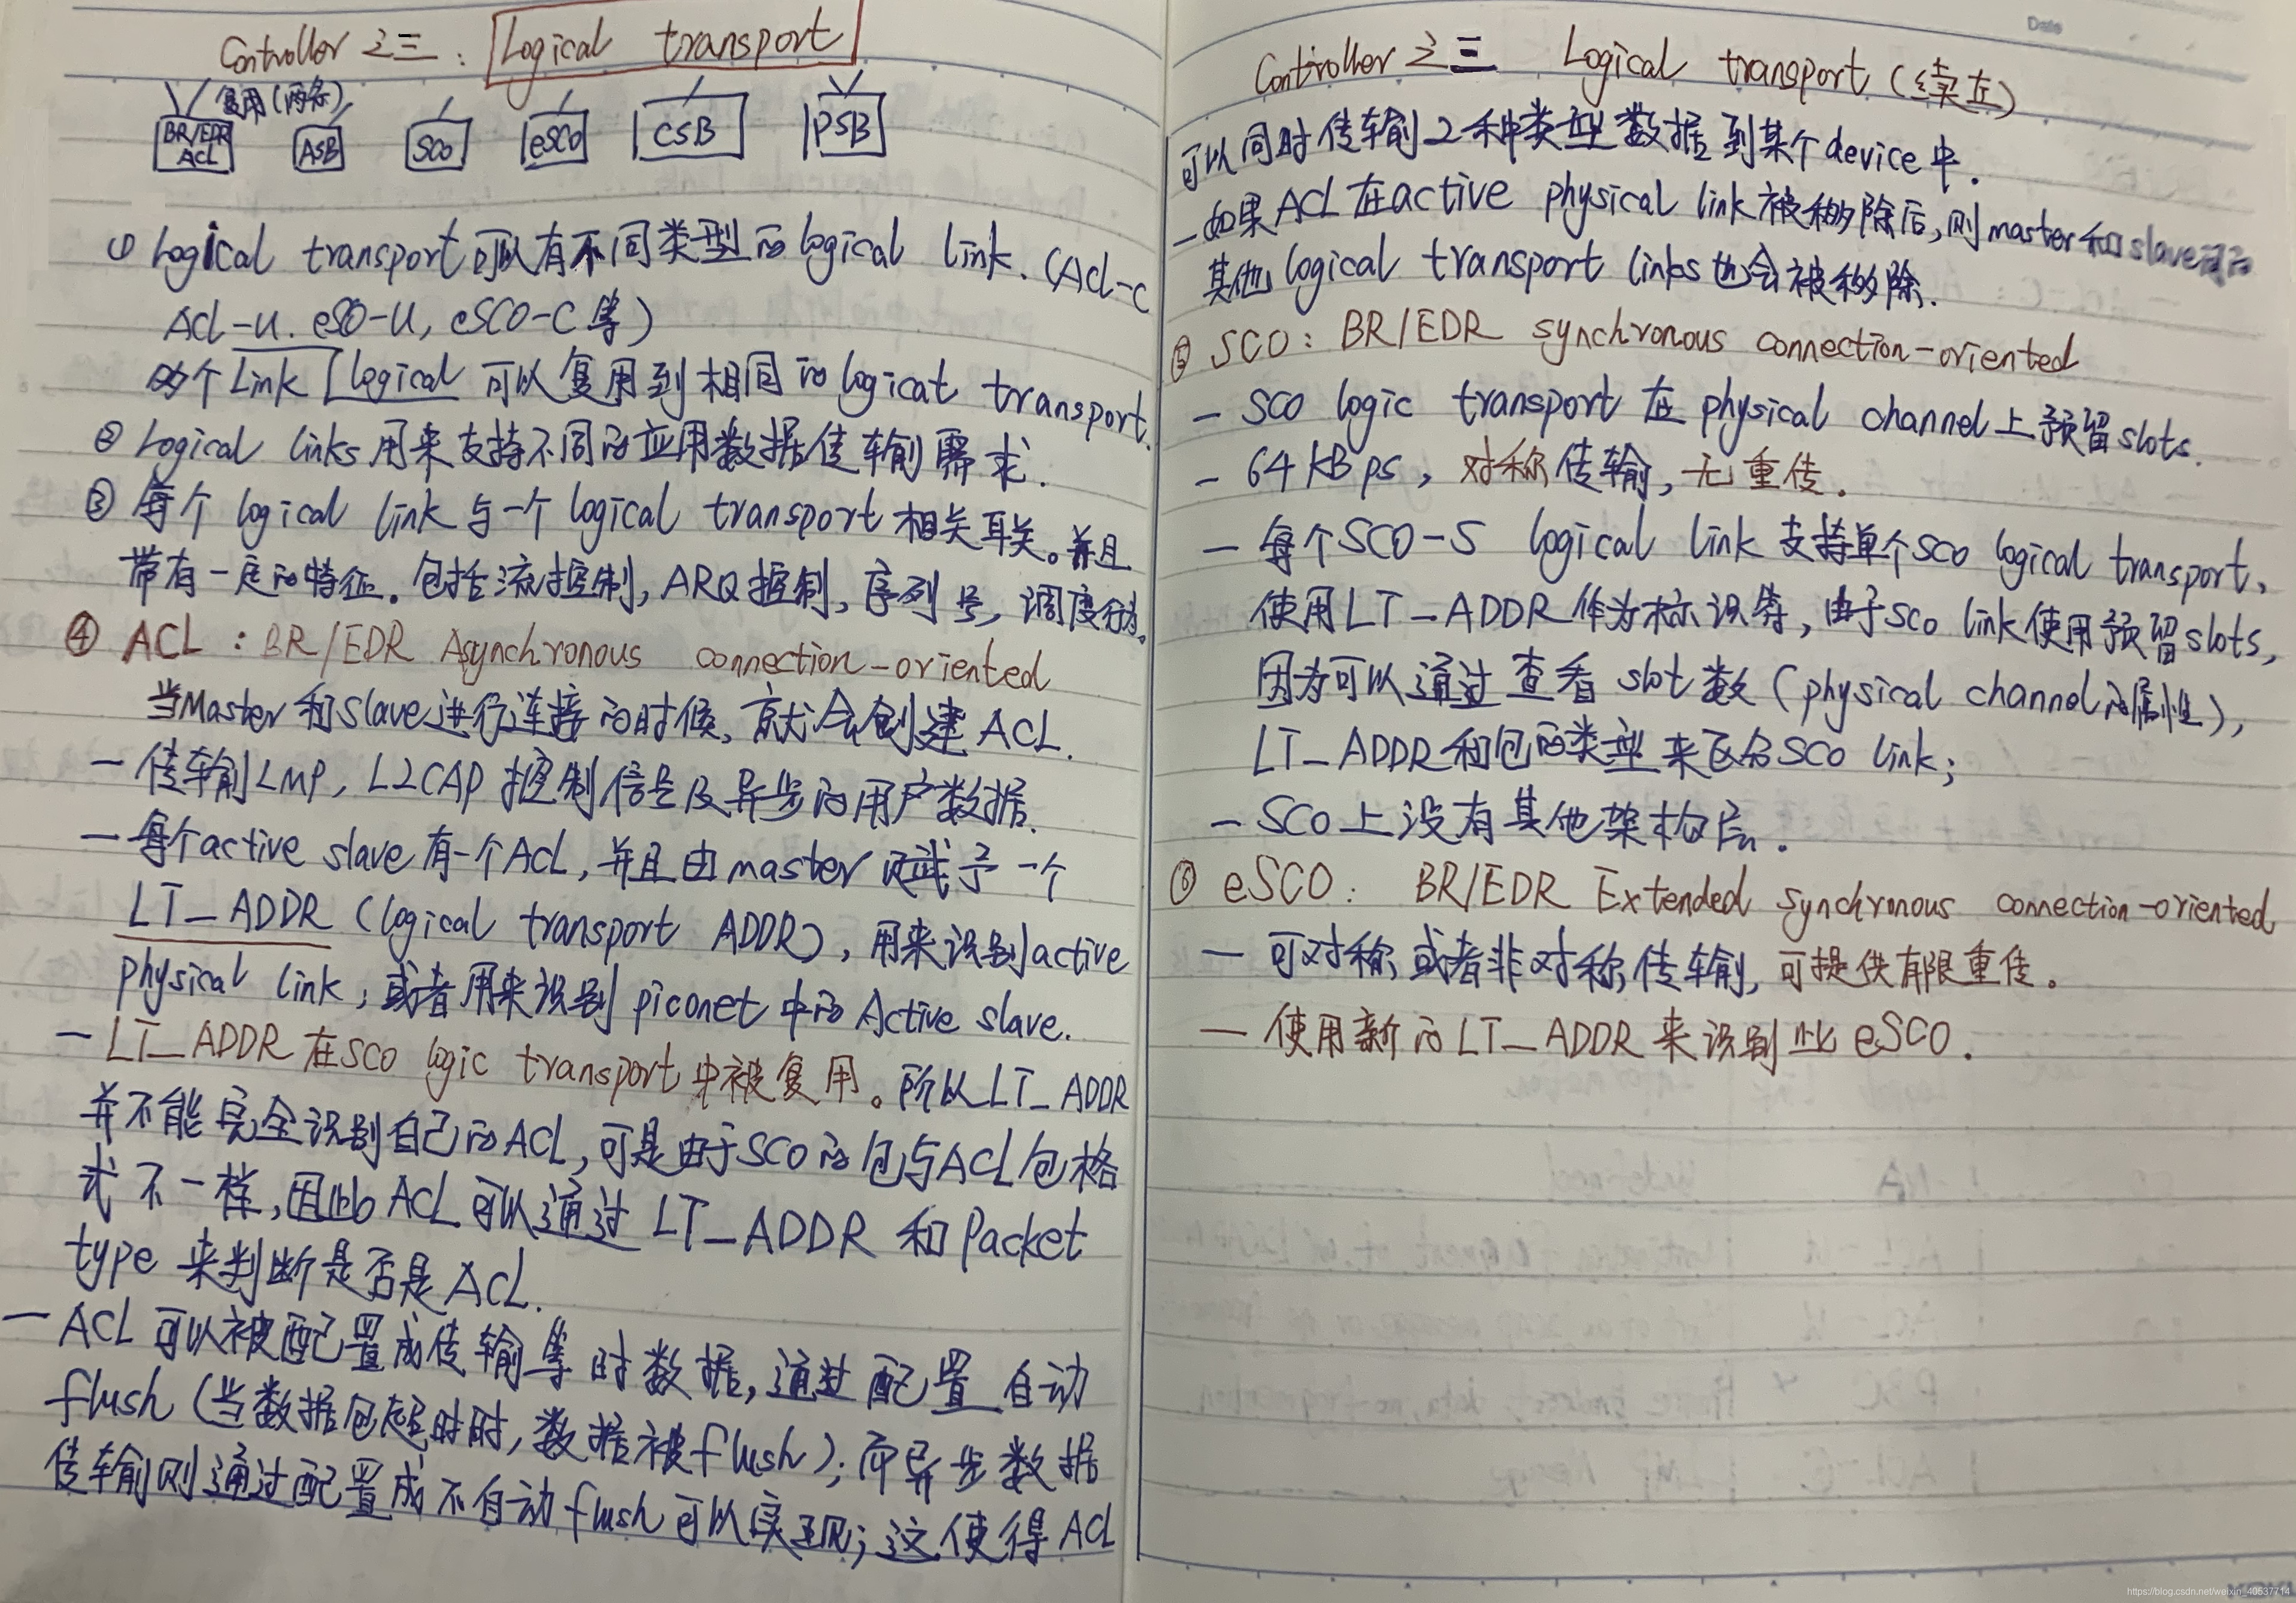 Controller 之三: Logical transport
复用(两条)
BR/EDR ACL ASB SCO eSCO CSB PSB
① Logical transport可以有不同类型的logical link. (ACL-C
ACL-U. eSO-U, eSCO-C 等)
的个Link logical 可以复用到相同的logicat transport.
② Logical links用来支持不同的应用数据传输需求.
③ 每个 logical link 与一个 logical transport 相关联。并且
带有一定的特征. 包括流控制, ARQ控制, 序列号, 调度行为.
④ ACL : BR/EDR Asynchronous connection-oriented
当Master 和slave进行连接的时候, 就会创建 ACL.
- 传输LMP, L2CAP 控制信号及异步的用户数据.
- 每个active slave 有一个ACL, 并且由master 赋予一个
LT_ADDR (logical transport ADDR), 用来识别active
physical link, 或者用来识别 piconet 中的 Active slave.
- LT_ADDR 在SCO logic transport中被复用。所以LT_ADDR
并不能完全识别自己的ACL, 可是由于SCO的包与ACL包格
式不一样, 因此 ACL 可以通过 LT_ADDR 和 Packet
type 来判断是否是ACL.
- ACL 可以被配置成传输等时数据, 通过配置自动
flush (当数据包超时时, 数据被flush); 而异步数据
传输则通过配置成不自动flush可以实现; 这使得ACL
Date
Controller 之三 Logical transport (续左)
可以同时传输2种类型数据到某个device中.
- 如果ACL在active physical link被移除后, 则master和slave
其他logical transport links也会被移除.
⑤ SCO: BR/EDR synchronous connection-oriented
- SCO logic transport 在 physical channel上预留slots.
- 64 KBps, 对称传输, 无重传.
- 每个SCO-S logical link 支持单个SCO logical transport,
使用LT_ADDR作为标识等, 由于SCO link使用预留slots,
因为可以通过查看 slot数 (physical channel的属性),
LT_ADDR和包的类型来区分SCO link;
- SCO上没有其他架构层.
⑥ eSCO: BR/EDR Extended synchronous connection-oriented
- 可对称, 或者非对称, 传输, 可提供有限重传。
- 使用新的LT_ADDR 来识别此 eSCO.
https://blog.csdn.net/weixin_40537714